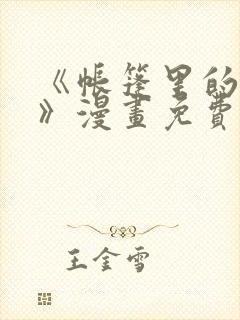 《帐篷里的
》漫畫免費
王金雪